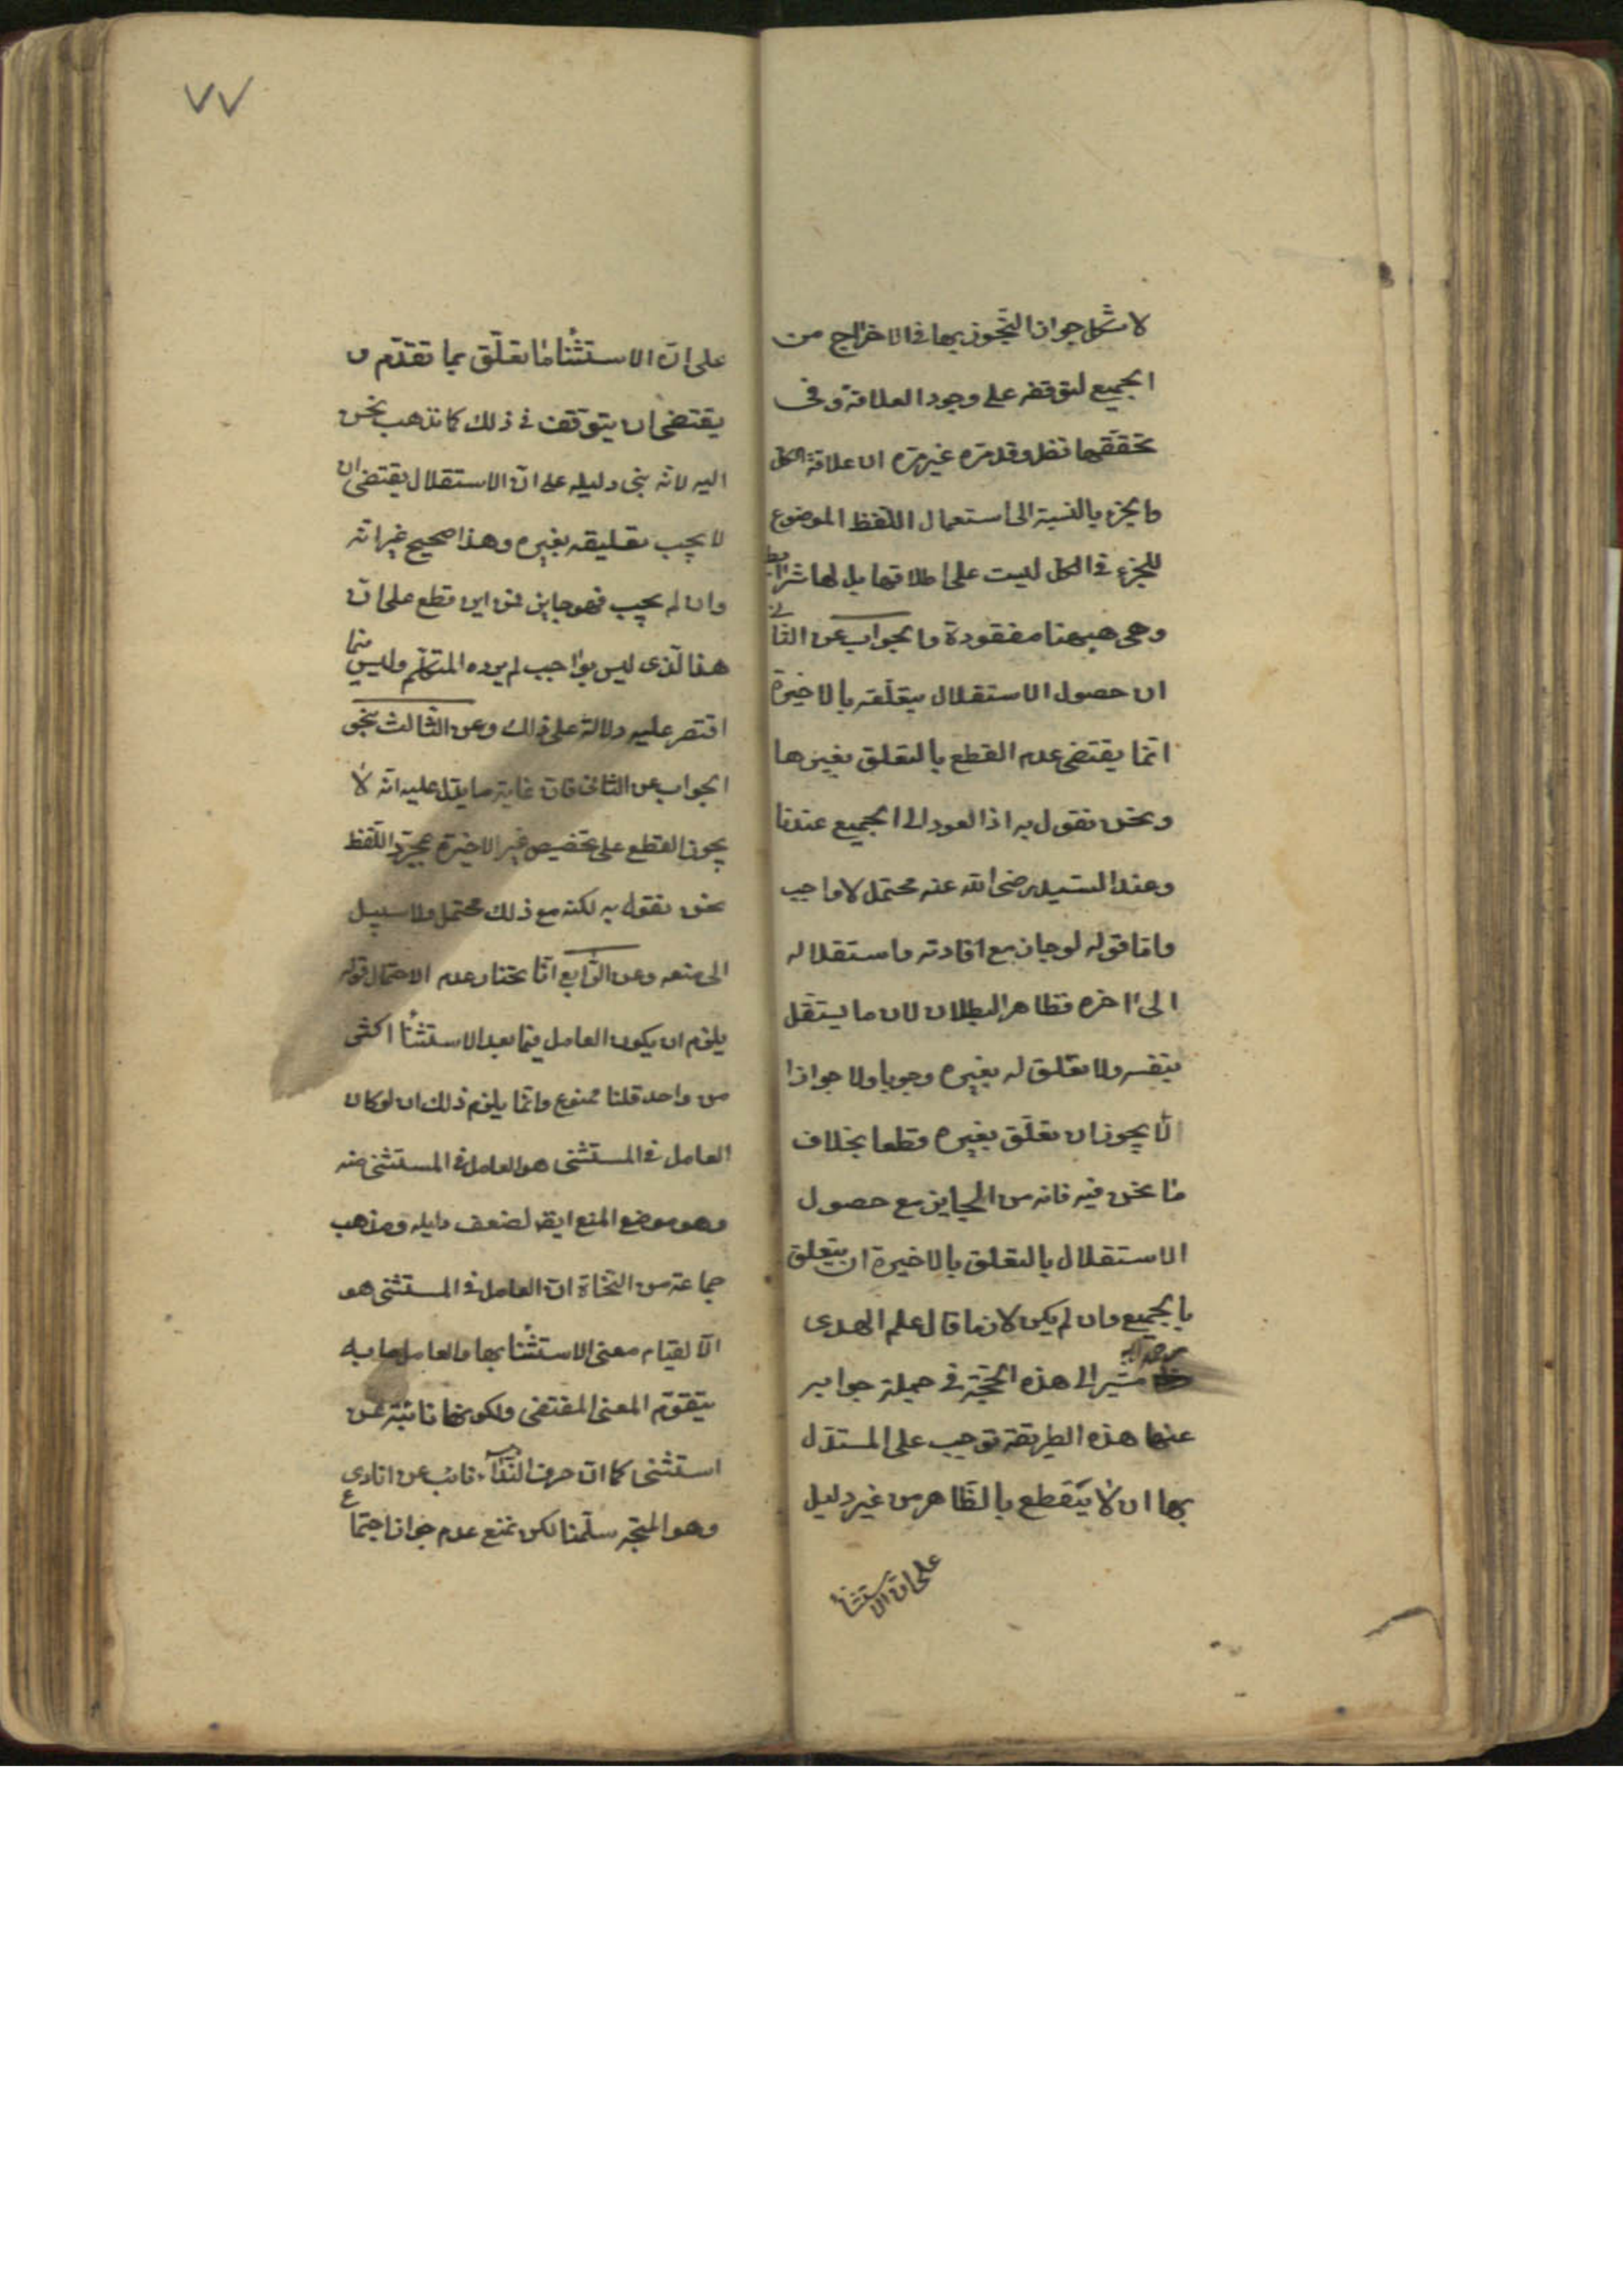 لاشكل جواز التجوز بها في الاخراج من
الجميع لتوقفه على وجود العلاقة وفي
تحققها نظر وقد مرّ غير مرّة ان علاقة الكل
والجزء بالنسبة الى استعمال اللفظ الموضوع
للجزء في الكل ليست على اطلاقها بل لها شرائط
وهي ههنا مفقودة والجواب عن الثاني
ان حصول الاستقلال بتعلقه بالاخيرة
انما يقتضي عدم القطع بالتعلق بغيرها
ونحن نقول به اذ العود الى الجميع عندنا
وعند السيد رضي الله عنه محتمل لا واجب
واما قوله لو جاز مع افادته واستقلاله
الى اخره فظاهر البطلان لان ما يستقل
بنفسه ولا تعلق له بغيره وجوبا ولا جوازا
لا يجوز ان تعلّق بغيره قطعا بخلاف
ما نحن فيه فانه من الجايز مع حصول
الاستقلال بالتعلق بالاخيرة ان يتعلق
بالجميع وان لم يكن لازما قال علم الهدى
مشير الى هذه الحجّة في جملة جوابه
عنها هذه الطريقة توجب على المستدل
بها ان لا يقطع بالظاهر من غير دليل
على ان الاستثناء
٧٧
على انّ الاستثنا ما تعلّق بما تقدّم و
يقتضى ان يتوقف في ذلك كما نذهب نحن
اليه لانه بنى دليله على انّ الاستقلال يقتضى ان
لا يجب تعليقه بغيره وهذا صحيح غير انّه
وان لم يجب فهو جايز فمن اين قطع على انّ
هذا الّذى ليس بواجب لم يرده المتكلّم وليس فيما
اقتصر عليه دلالة على ذلك وعن الثّالث بنحو
الجواب عن الثانى فانّ غاية ما يدل عليه انّه لا
يجوز القطع على تخصيص غير الاخيرة بمجرّد اللّفظ
نحن نقول به لكنه مع ذلك محتمل ولا سبيل
الى منعه وعن الرّابع انّا نختار عدم الاحتمال قوله
يلزم ان يكون العامل فيما بعد الاستثنأ اكثر
من واحد قلنا ممنوع وانّما يلزم ذلك ان لو كان
العامل في المستثنى هو العامل في المستثنى منه
وهو موضع المنع ايضا لضعف دليله ومذهب
جماعة من النّحاة ان العامل في المستثنى هو
الّا لقيام معنى الاستثنأ بها والعامل ما به
يتقوّم المعنى المقتضى ولكونها نائبة عن
استثنى كما انّ حرف النّدآء نائب عن انادى
وهو المتجه سلّمنا لكن نمنع عدم جواز اجتماع